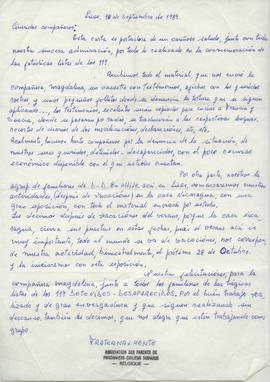 Lieja, 10 de Septiembre de 1989.
Queridos compañeros:
Esta carta es portadora de un cariñoso saludo, junto con toda
nuestra sincera admiración, por todo lo realizado en la conmemoración de
los fatídicos listas de los 119.
Recibimos todo el material, que nos envió la
compañera Magdalena, un cassette con testimonios, afiches con los queridos
rostros y unos pequeños folletos donde se denuncia la tortura que se siguen
aplicando,
Suecia, donde se pasaron por radios, se traducirán a los respectivos lenguas,
recortes de diarios de las movilizaciones, declaraciones, etc, etc.
Realmente, hicieron tanto compañeros por la denuncia de la situación de
nuestros seres queridos, detenidos-desaparecidos, con el poco recurso
económico disponible con el que ustedes cuentan.
Por otra parte, nuestra
agrup. de familiares de D.D. en Chile acá en Lieja, comenzaremos nuestras
actividades, después de vacaciones en la casa Nicaragua, con una
gran exposición, con todo el material enviado por ustedes.
Les decimos después de vacaciones del verano, porque la casa Nica
ragua, cierra sus puertas en estas fechas, pues el verano aquí es
muy importante, todo el mundo se va de vacaciones, nos corresponde
de nuestra actividad, bienestarmente, el próximo 28 de Octubre.
y la iniciamos con esta exposición.
Nuestras felicitaciones, para la
compañera Magdalena, junto a todos los familiares de las trágicas
listas de los 119 DETENIDOS-DESAPARECIDOS. Por el buen trabajo rea
lizado y de gran envergadura y que siguen realizando sin
descanso, también les decimos, que nos alegra que estén trabajando como
grupo.
FRATERNALMENTE
ASSOCIATION DES PARENTS DE
PRISONNIERS CHILIENS DISPARUS
- BELGIQUE -